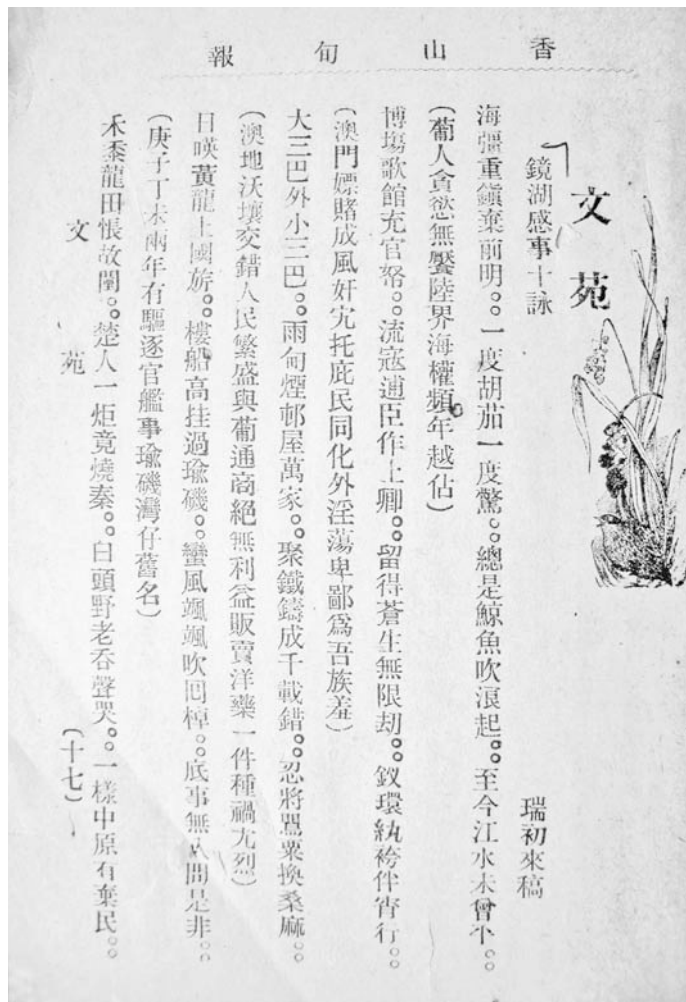 香山旬報
文苑
鏡湖感事十詠 瑞初來稿
海疆重鎭棄前明。。一度胡茄一度驚。。總是鯨魚吹浪起。。至今江水未曾平。。
(葡人貪慾無饜陸界海權頻年越佔)
博塲歌館充官帑。。流寇逋臣作上卿。。留得蒼生無限刧。。釵環紈袴伴宵行。。
(澳門嫖賭成風奸宄托庇民同化外淫蕩卑鄙爲吾族羞)
大三巴外小三巴。。雨甸煙邨屋萬家。。聚鐵鑄成千載錯。。忍將罌粟換桑麻。。
(澳地沃壤交錯人民繁盛與葡通商絕無利益販賣洋藥一件種禍尤烈)
日暎黃龍上國旂。。樓船高挂過瑜磯。。蠻風颯颯吹囘棹。。底事無人問是非。。
(庚子丁未兩年有驅逐官艦事瑜磯灣仔舊名)
禾黍龍田悵故闉。。楚人一炬竟燒秦。。白頭野老吞聲哭。。一樣中原有棄民。。
文 苑 (十七)